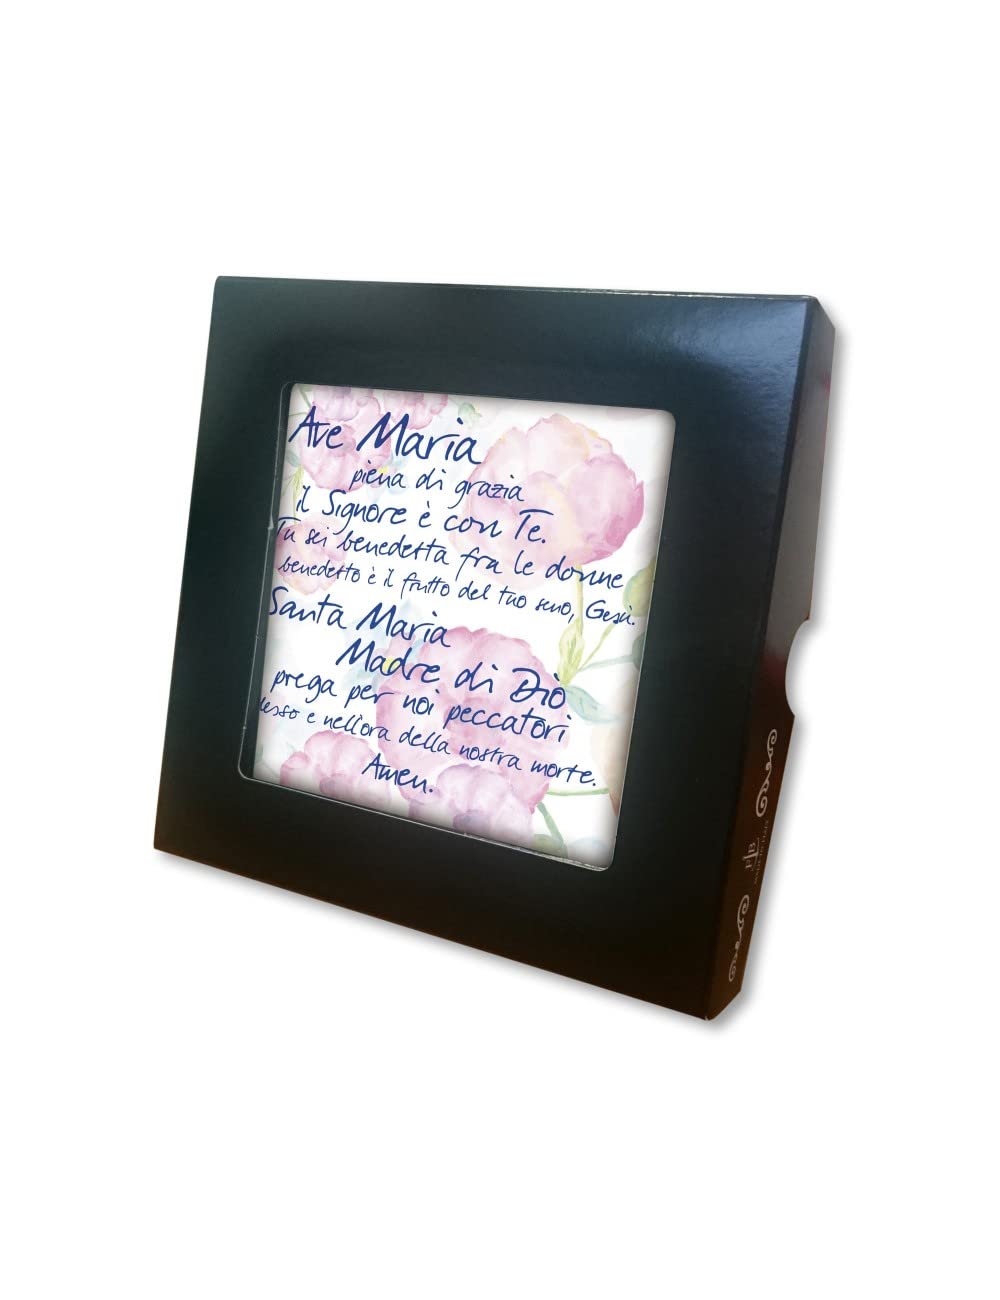 Ave Maria
piena di grazia
il Signore è con Te.
Tu sei benedetta fra le donne
benedetto è il frutto del tuo seno, Gesù.
Santa Maria
Madre di Diò
prega per noi peccatori
esso e nell'ora della nostra morte.
Amen.
MADE IN ITALY